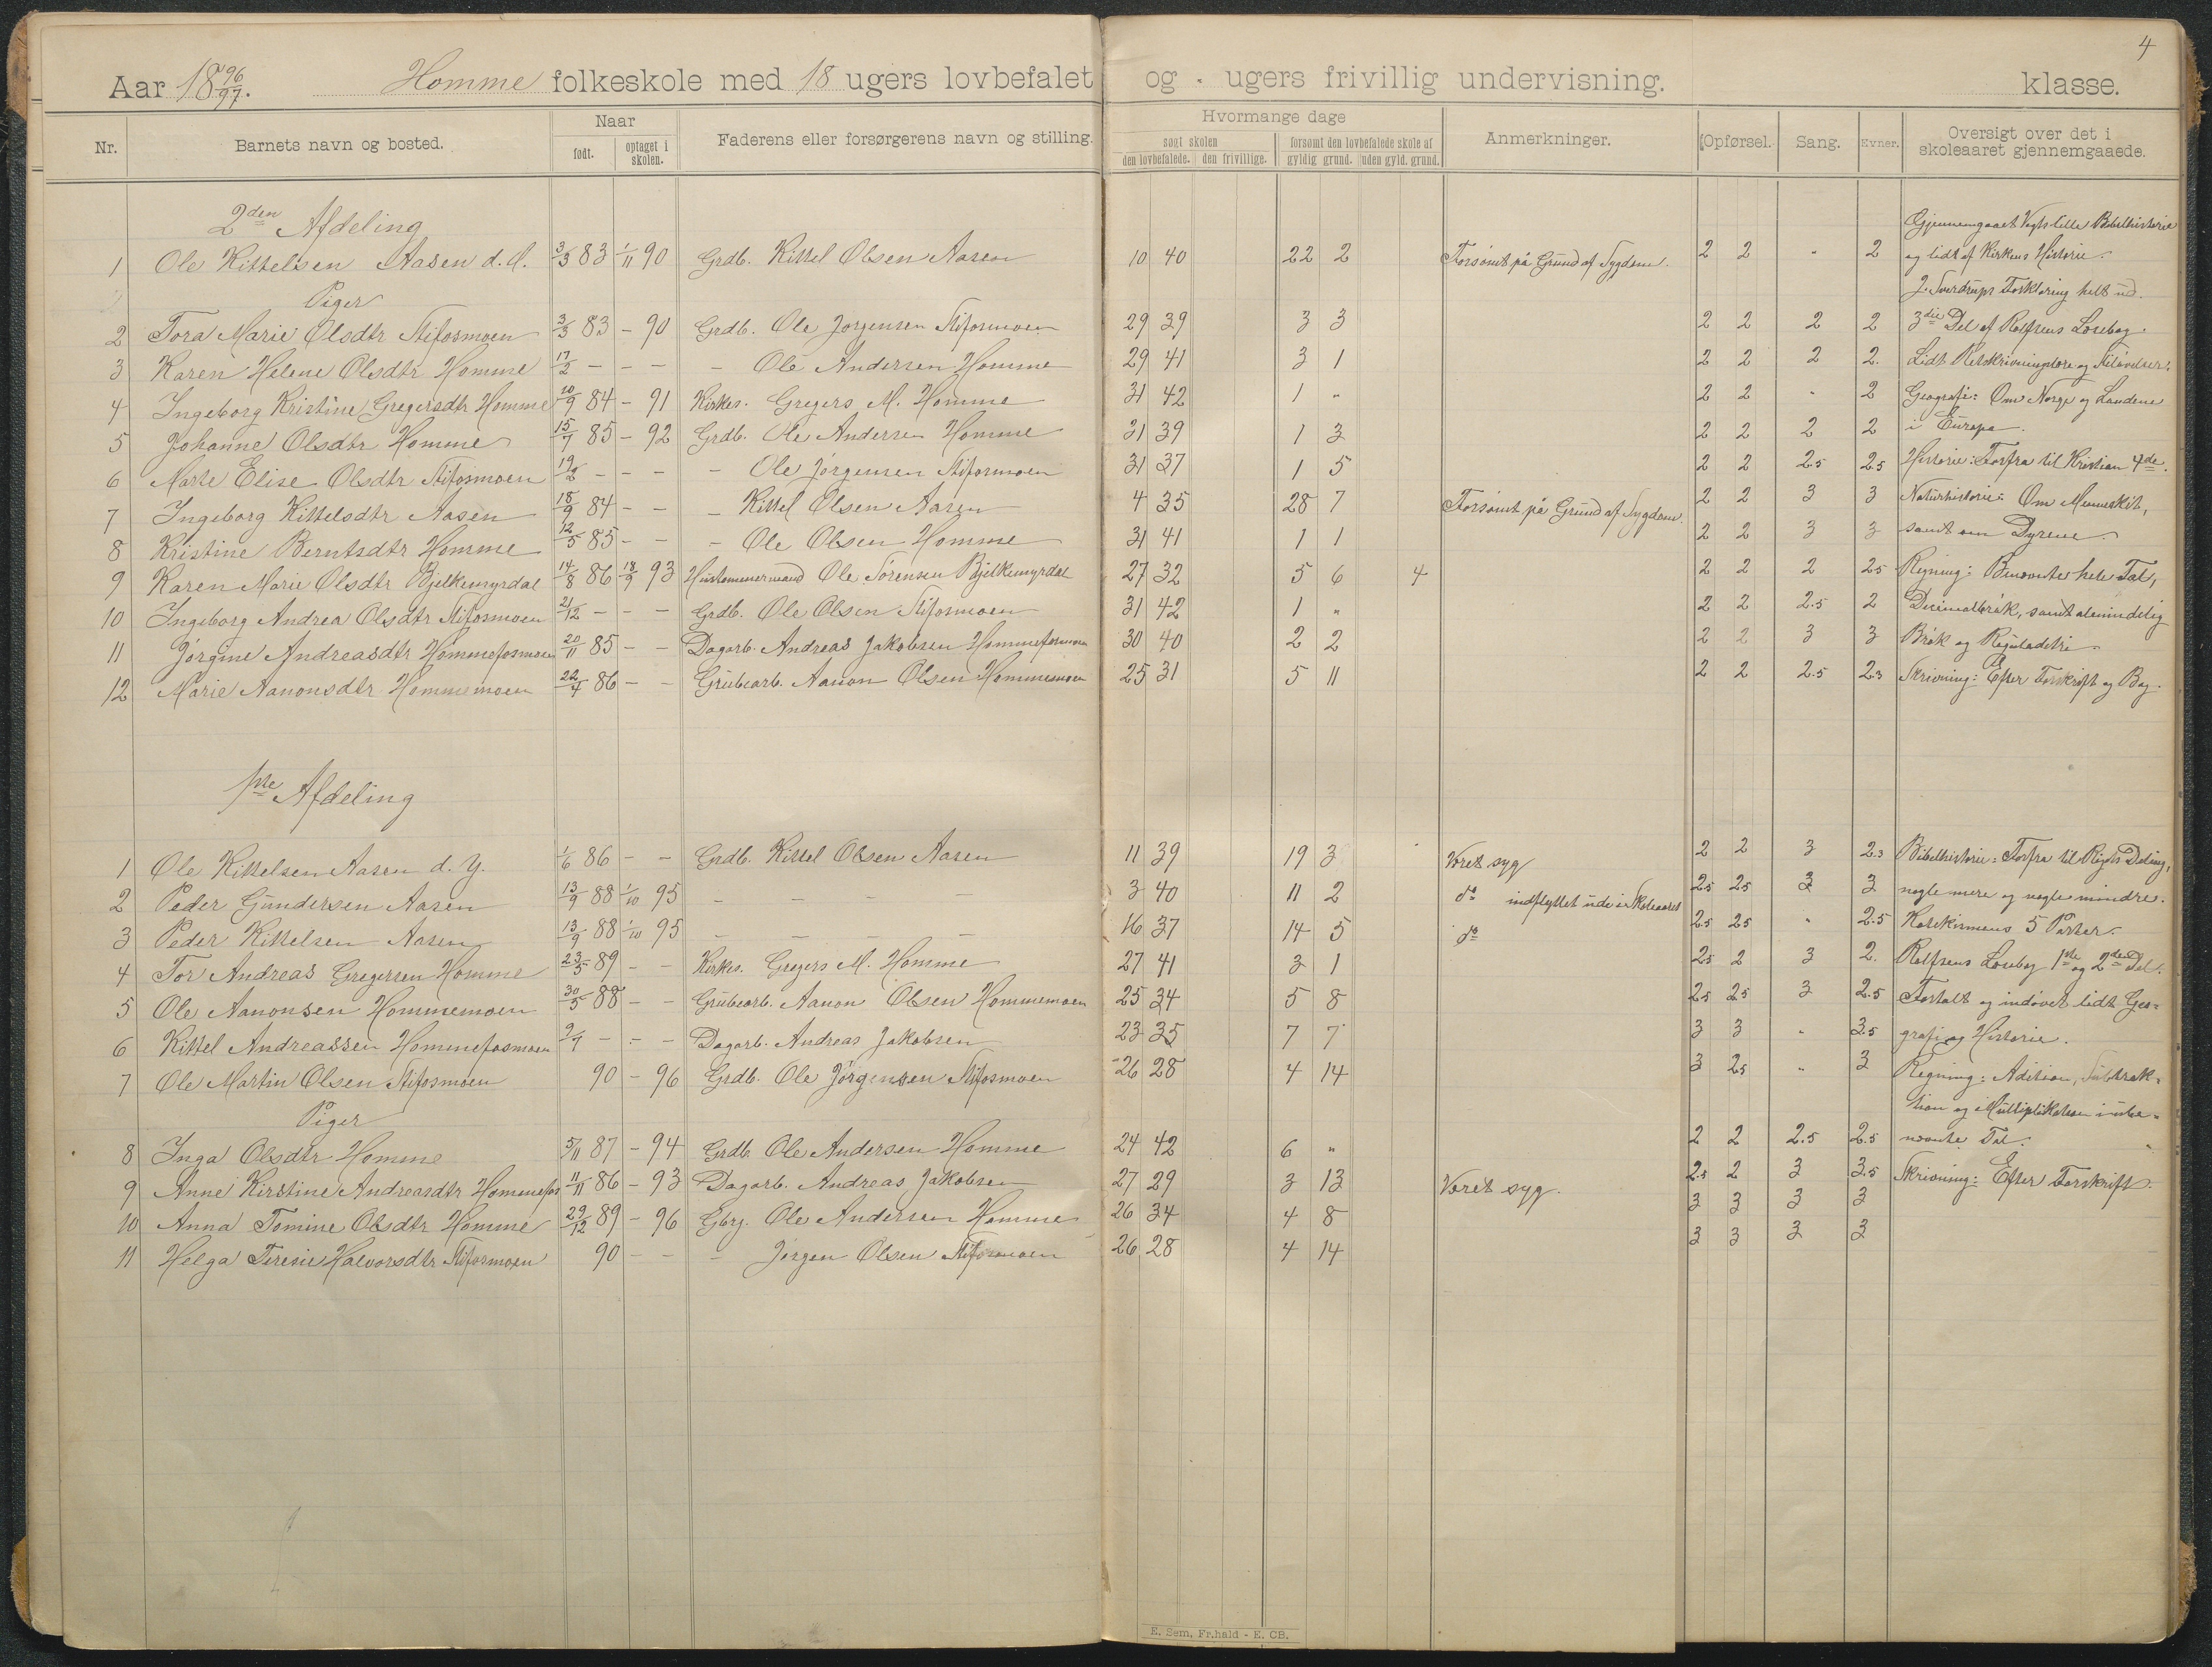 4
Aar 18 96/97. Homme folkeskole med 18 ugers lovbefalet og „ ugers frivillig undervisning. klasse.
Nr. Barnets navn og bosted. Naar født. optaget i skolen. Faderens eller forsørgerens navn og stilling. Hvormange dage søgt skolen den lovbefalede. den frivillige. forsømt den lovbefalede skole af gyldig grund. uden gyld. grund. Anmerkninger. Opførsel. Sang. Evner. Oversigt over det i skoleaaret gjennemgaaede.
2den Afdeling Gjennemgaaet Vogts lille Bibelhistorie
1 Ole Kittelsen Aasen d. Æ. 3/3 83 1/11 90 Grdb. Kittel Olsen Aasen 10 40 22 2 Forsømt på Grund af Sygdom. 2 2 „ 2 og lidt af Kirkens Historie.
Piger J. Sverdrups Forklaring helt ud.
2 Tora Marie Olsdtr Stifosmoen 3/3 83 – 90 Grdb. Ole Jørgensen Stifosmoen 29 39 3 3 2 2 2 2 3die Del af Rolfsens Læsebog.
3 Karen Helene Olsdtr Homme 17/2 – – – – Ole Andersen Homme 29 41 3 1 2 2 2 2. Lidt Retskrivningslære og Stiløvelser.
4 Ingeborg Kristine Gregersdtr Homme 10/9 84 – 91 Kirkes. Gregers M. Homme 31 42 1 „ 2 2 „ 2 Geografi: Om Norge og Landene
5 Johanne Olsdtr Homme 15/7 85 – 92 Grdb. Ole Andersen Homme 31 39 1 3 2 2 2 2 i Europa.
6 Marte Elise Olsdtr Stifosmoen 19/2 – – – – Ole Jørgensen Stifosmoen 31 37 1 5 2 2 2.5 2.5 Historie: Forfra til Kristian 4de.
7 Ingeborg Kittelsdtr Aasen 18/9 84 – – – Kittel Olsen Aasen 4 35 28 7 Forsømt på Grund af Sygdom. 2 2 3 3 Naturhistorie: Om Mennesket,
8 Kristine Berntsdtr Homme 12/5 85 – – – Ole Olsen Homme 31 41 1 1 2 2 3 3 samt om Dyrene.
9 Karen Marie Olsdtr Bjelkemyrdal 14/8 86 18/9 93 Ole Sørensen Bjelkemyrdal 27 32 5 6 4 2 2 2 2.5 Regning: Benævnte hele Tal,
10 Ingeborg Andrea Olsdtr Stifosmoen 21/12 – – – Grdb. Ole Olsen Stifosmoen 31 42 1 „ 2 2 2.5 2 Decimalbrøk, samt almindelig
11 Jørgine Andreasdtr Hommefosmoen 20/11 85 – – Dagarb. Andreas Jakobsen Hommefosmoen 30 40 2 2 2 2 3 3 Brøk og Reguladetri.
12 Marie Aanonsdtr Hommemoen 22/4 86 – – Grubearb. Aanon Olsen Hommemoen 25 31 5 11 2 2 2.5 2.3 Skrivning: Efter Forskrift og Bog.
1ste Afdeling
1 Ole Kittelsen Aasen d. Y. 1/6 86 – – Grdb. Kittel Olsen Aasen 11 39 19 3 Været syg 2 2 3 2.3 Bibelhistorie: Forfra til Rigets Deling,
2 Peder Gundersen Aasen 13/9 88 1/10 95 – – – – 3 40 11 2 do indflyttet ude i Skoleaaret 2.5 2.5 3 3 nogle mere og nogle mindre.
3 Peder Kittelsen Aasen 13/9 88 1/10 95 – – – – 16 37 14 5 do 2.5 2.5 „ 2.5 Katekismens 5 Parter.
4 Tor Andreas Gregersen Homme 23/5 89 – – Kirkes. Gregers M. Homme 27 41 3 1 2.5 2 3 2. Rolfsens Læsebog 1ste og 2den Del.
5 Ole Aanonsen Hommemoen 30/5 88 – – Grubearb. Aanon Olsen Hommemoen 25 34 5 8 2.5 2.5 3 2.5 Fortalt og indøvet lidt Geo=
6 Kittel Andreassen Hommefosmoen 9/7 – – – Dagarb. Andreas Jakobsen 23 35 7 7 3 3 „ 3.5 grafi og Historie.
7 Ole Martin Olsen Stifosmoen 90 – 96 Grdb. Ole Jørgensen Stifosmoen 26 28 4 14 3 2.5 „ 3 Regning: Adition, Subtrak=
Piger tion og Multiplikation i ube=
8 Inga Olsdtr Homme 5/11 87 – 94 Grdb. Ole Andersen Homme 24 42 6 „ 2 2 2.5 2.5 nævnte Tal.
9 Anne Kirstine Andreasdtr Hommefos 11/11 86 – 93 Dagarb. Andreas Jakobsen 27 29 3 13 Været syg. 2.5 2 3 3.5 Skrivning: Efter Forskrift.
10 Anna Tomine Olsdtr Homme 29/12 89 – 96 Ole Andersen Homme 26 34 4 8 3 3 3 3
11 Helga Teresie Halvorsdtr Stifosmoen 90 – – – Jørgen Olsen Stifosmoen 26 28 4 14 3 3 3 3
E. Sem, Fr.hald - E. CB.